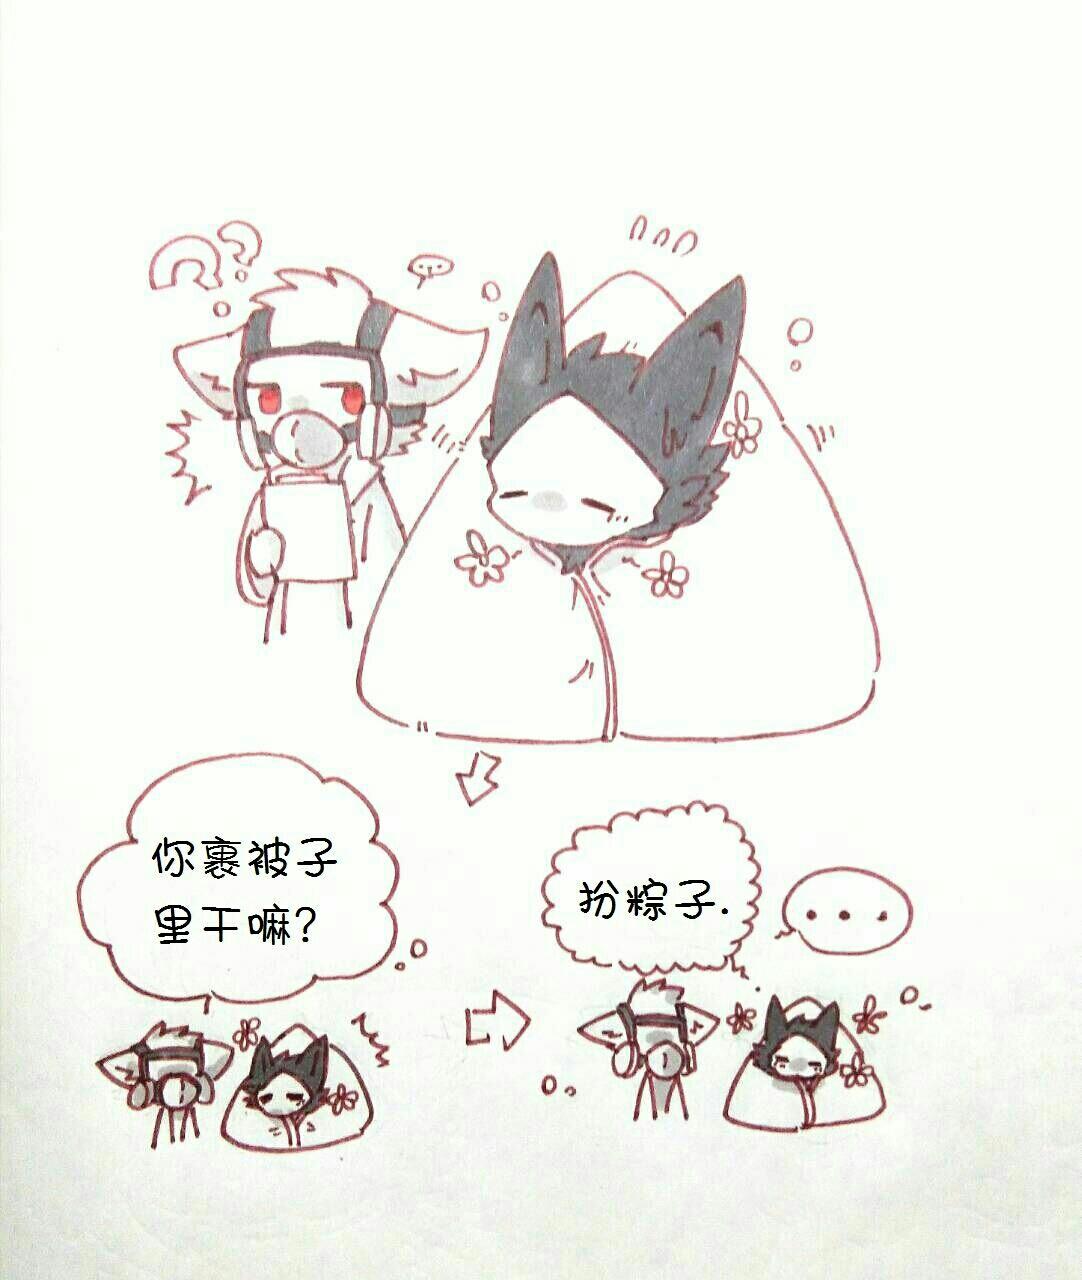 ??
...
你裹被子
里干嘛?
扮粽子.
...